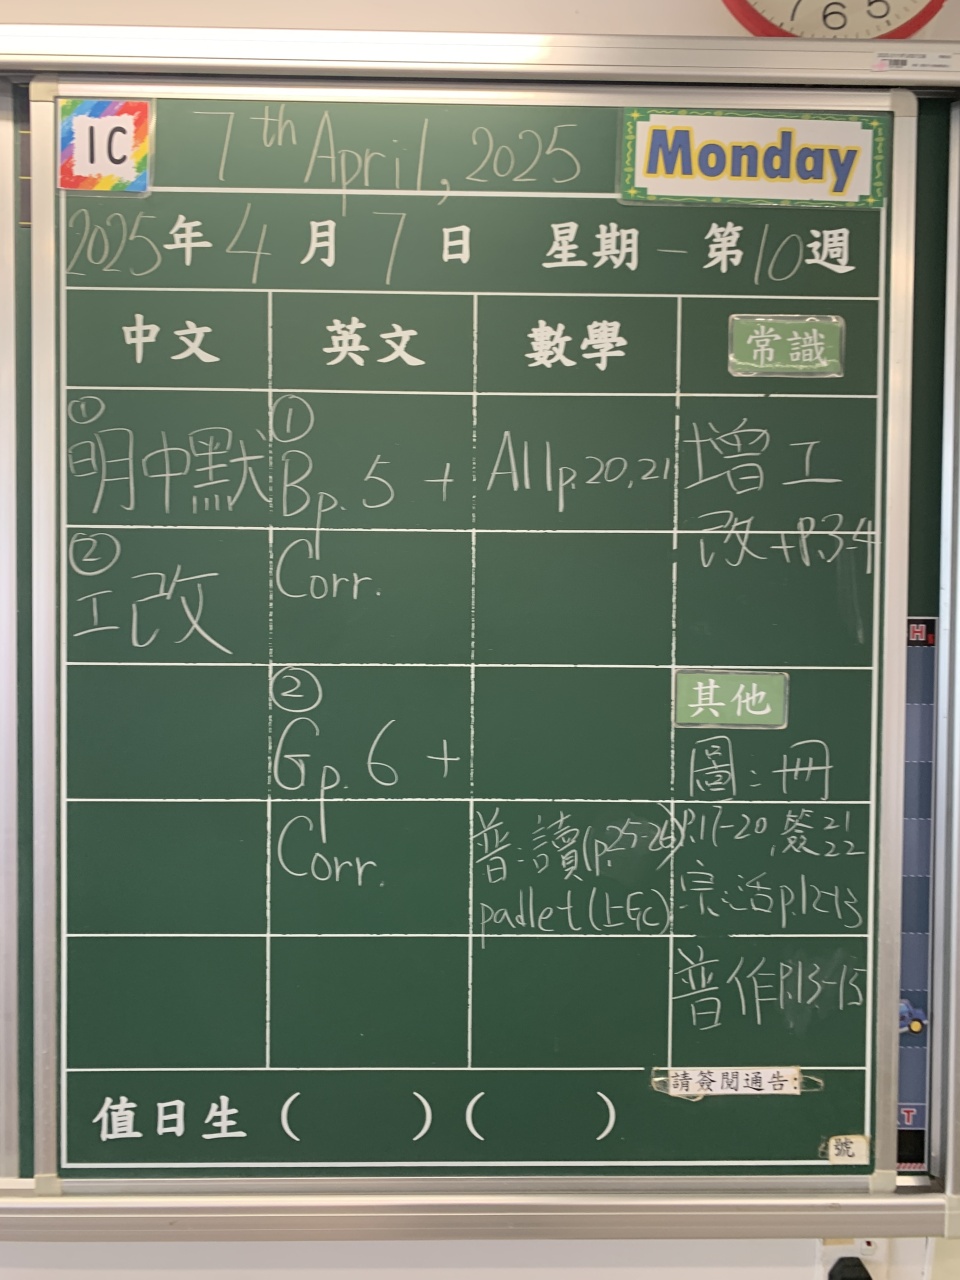 7 6 5
1C
7th April, 2025
Monday
2025年4月7日 星期一 第10週
中文 英文 數學 常識
①
明中默
②
工改
①
Bp.5 +
Corr.
②
Gp.6 +
Corr.
A11p.20,21
普:讀(p.25-26)
padlet(上Gc)
增工
改+P.3-4
其他
圖:冊
P.17-20,簽21
22
宗:活p.12-13
普作P.13-15
請簽閱通告:
號
值日生 ( ) ( )